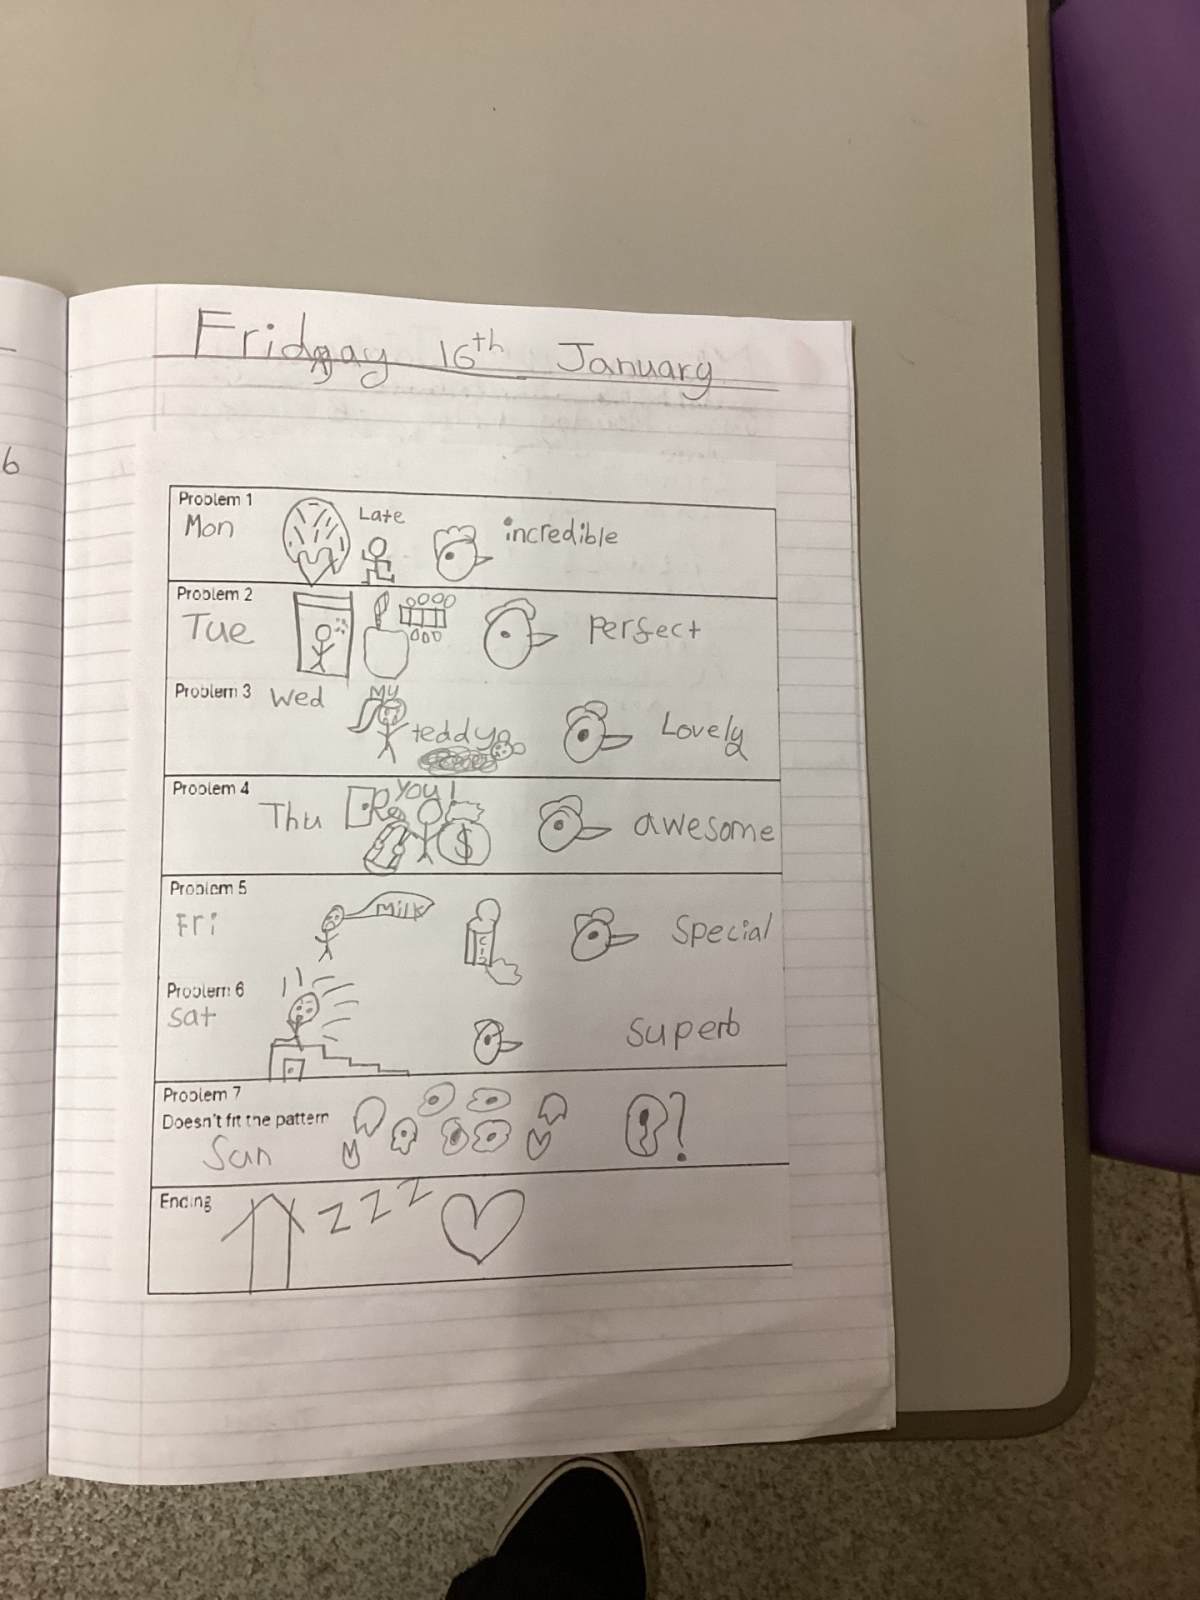 Friday 16th January
6
Problem 1
Mon
Late
incredible
Problem 2
Tue
Perfect
Problem 3
Wed
My
teddy
Lovely
Problem 4
Thu
You!
$
awesome
Problem 5
Fri
Milk
Special
Problem 6
Sat
Superb
Problem 7
Doesn't fit the pattern
Sun
?
Ending
Z Z Z